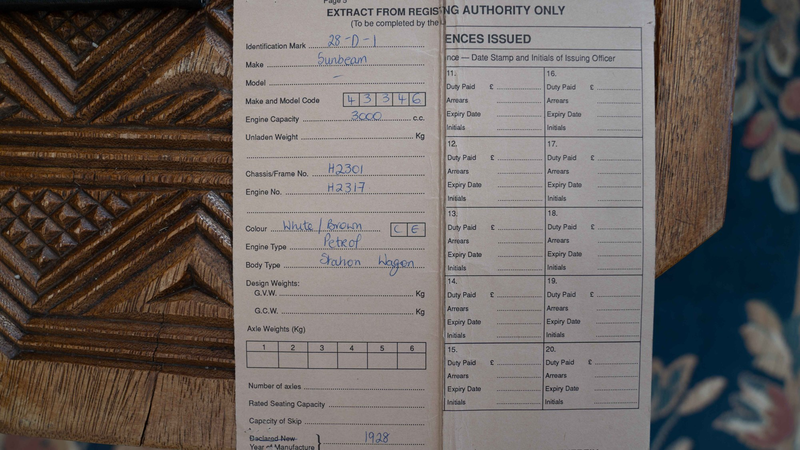 Page 5
EXTRACT FROM REGIS
(To be completed by the
Identification Mark 28-D-1
Make Sunbeam
Model –
Make and Model Code 4 3 3 4 6
Engine Capacity 3000 c.c.
Unladen Weight Kg
Chassis/Frame No. H2301
Engine No. H2317
Colour White / Brown C E
Engine Type Petrol
Body Type Station Wagon
Design Weights:
G.V.W. Kg
G.C.W. Kg
Axle Weights (Kg)
1 2 3 4 5 6
Number of axles
Rated Seating Capacity
Capacity of Skip
Declared New
Year of Manufacture } 1928
NG AUTHORITY ONLY
ENCES ISSUED
nce — Date Stamp and Initials of Issuing Officer
11. 16.
Duty Paid £ Duty Paid £
Arrears Arrears
Expiry Date Expiry Date
Initials Initials
12. 17.
Duty Paid £ Duty Paid £
Arrears Arrears
Expiry Date Expiry Date
Initials Initials
13. 18.
Duty Paid £ Duty Paid £
Arrears Arrears
Expiry Date Expiry Date
Initials Initials
14. 19.
Duty Paid £ Duty Paid £
Arrears Arrears
Expiry Date Expiry Date
Initials Initials
15. 20.
Duty Paid £ Duty Paid £
Arrears Arrears
Expiry Date Expiry Date
Initials Initials